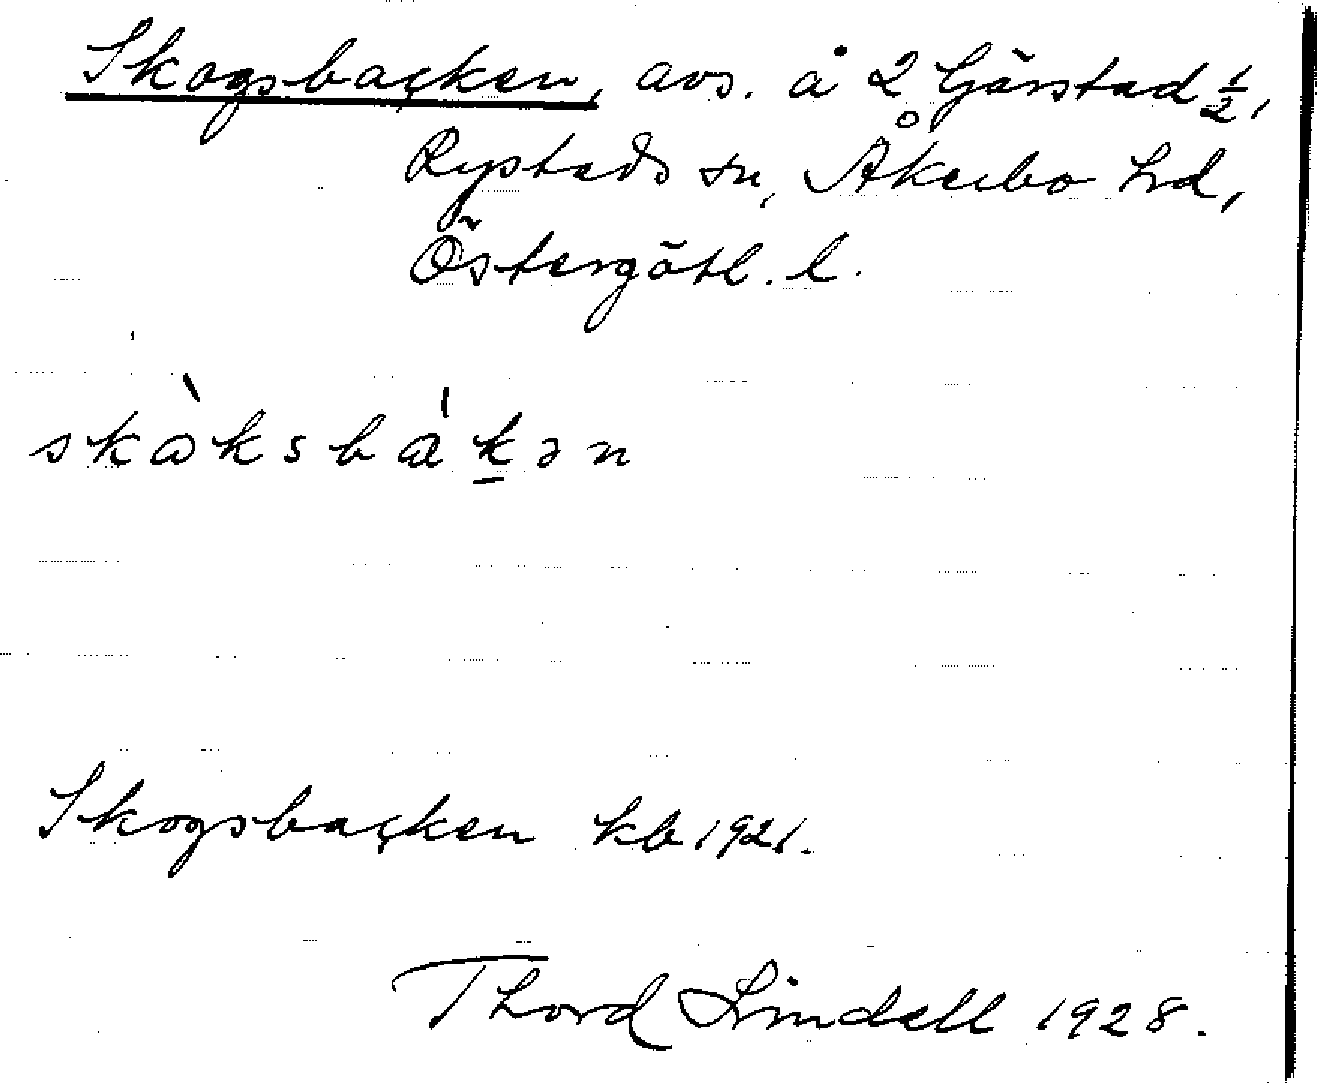 Skogsbacken, avs. å 2 Gärstad ½,
Rystads sn, Åkerbo hd,
Östergötl. l.
skòksbákən
Skogsbacken kb 1921.
Thord Lindell 1928.